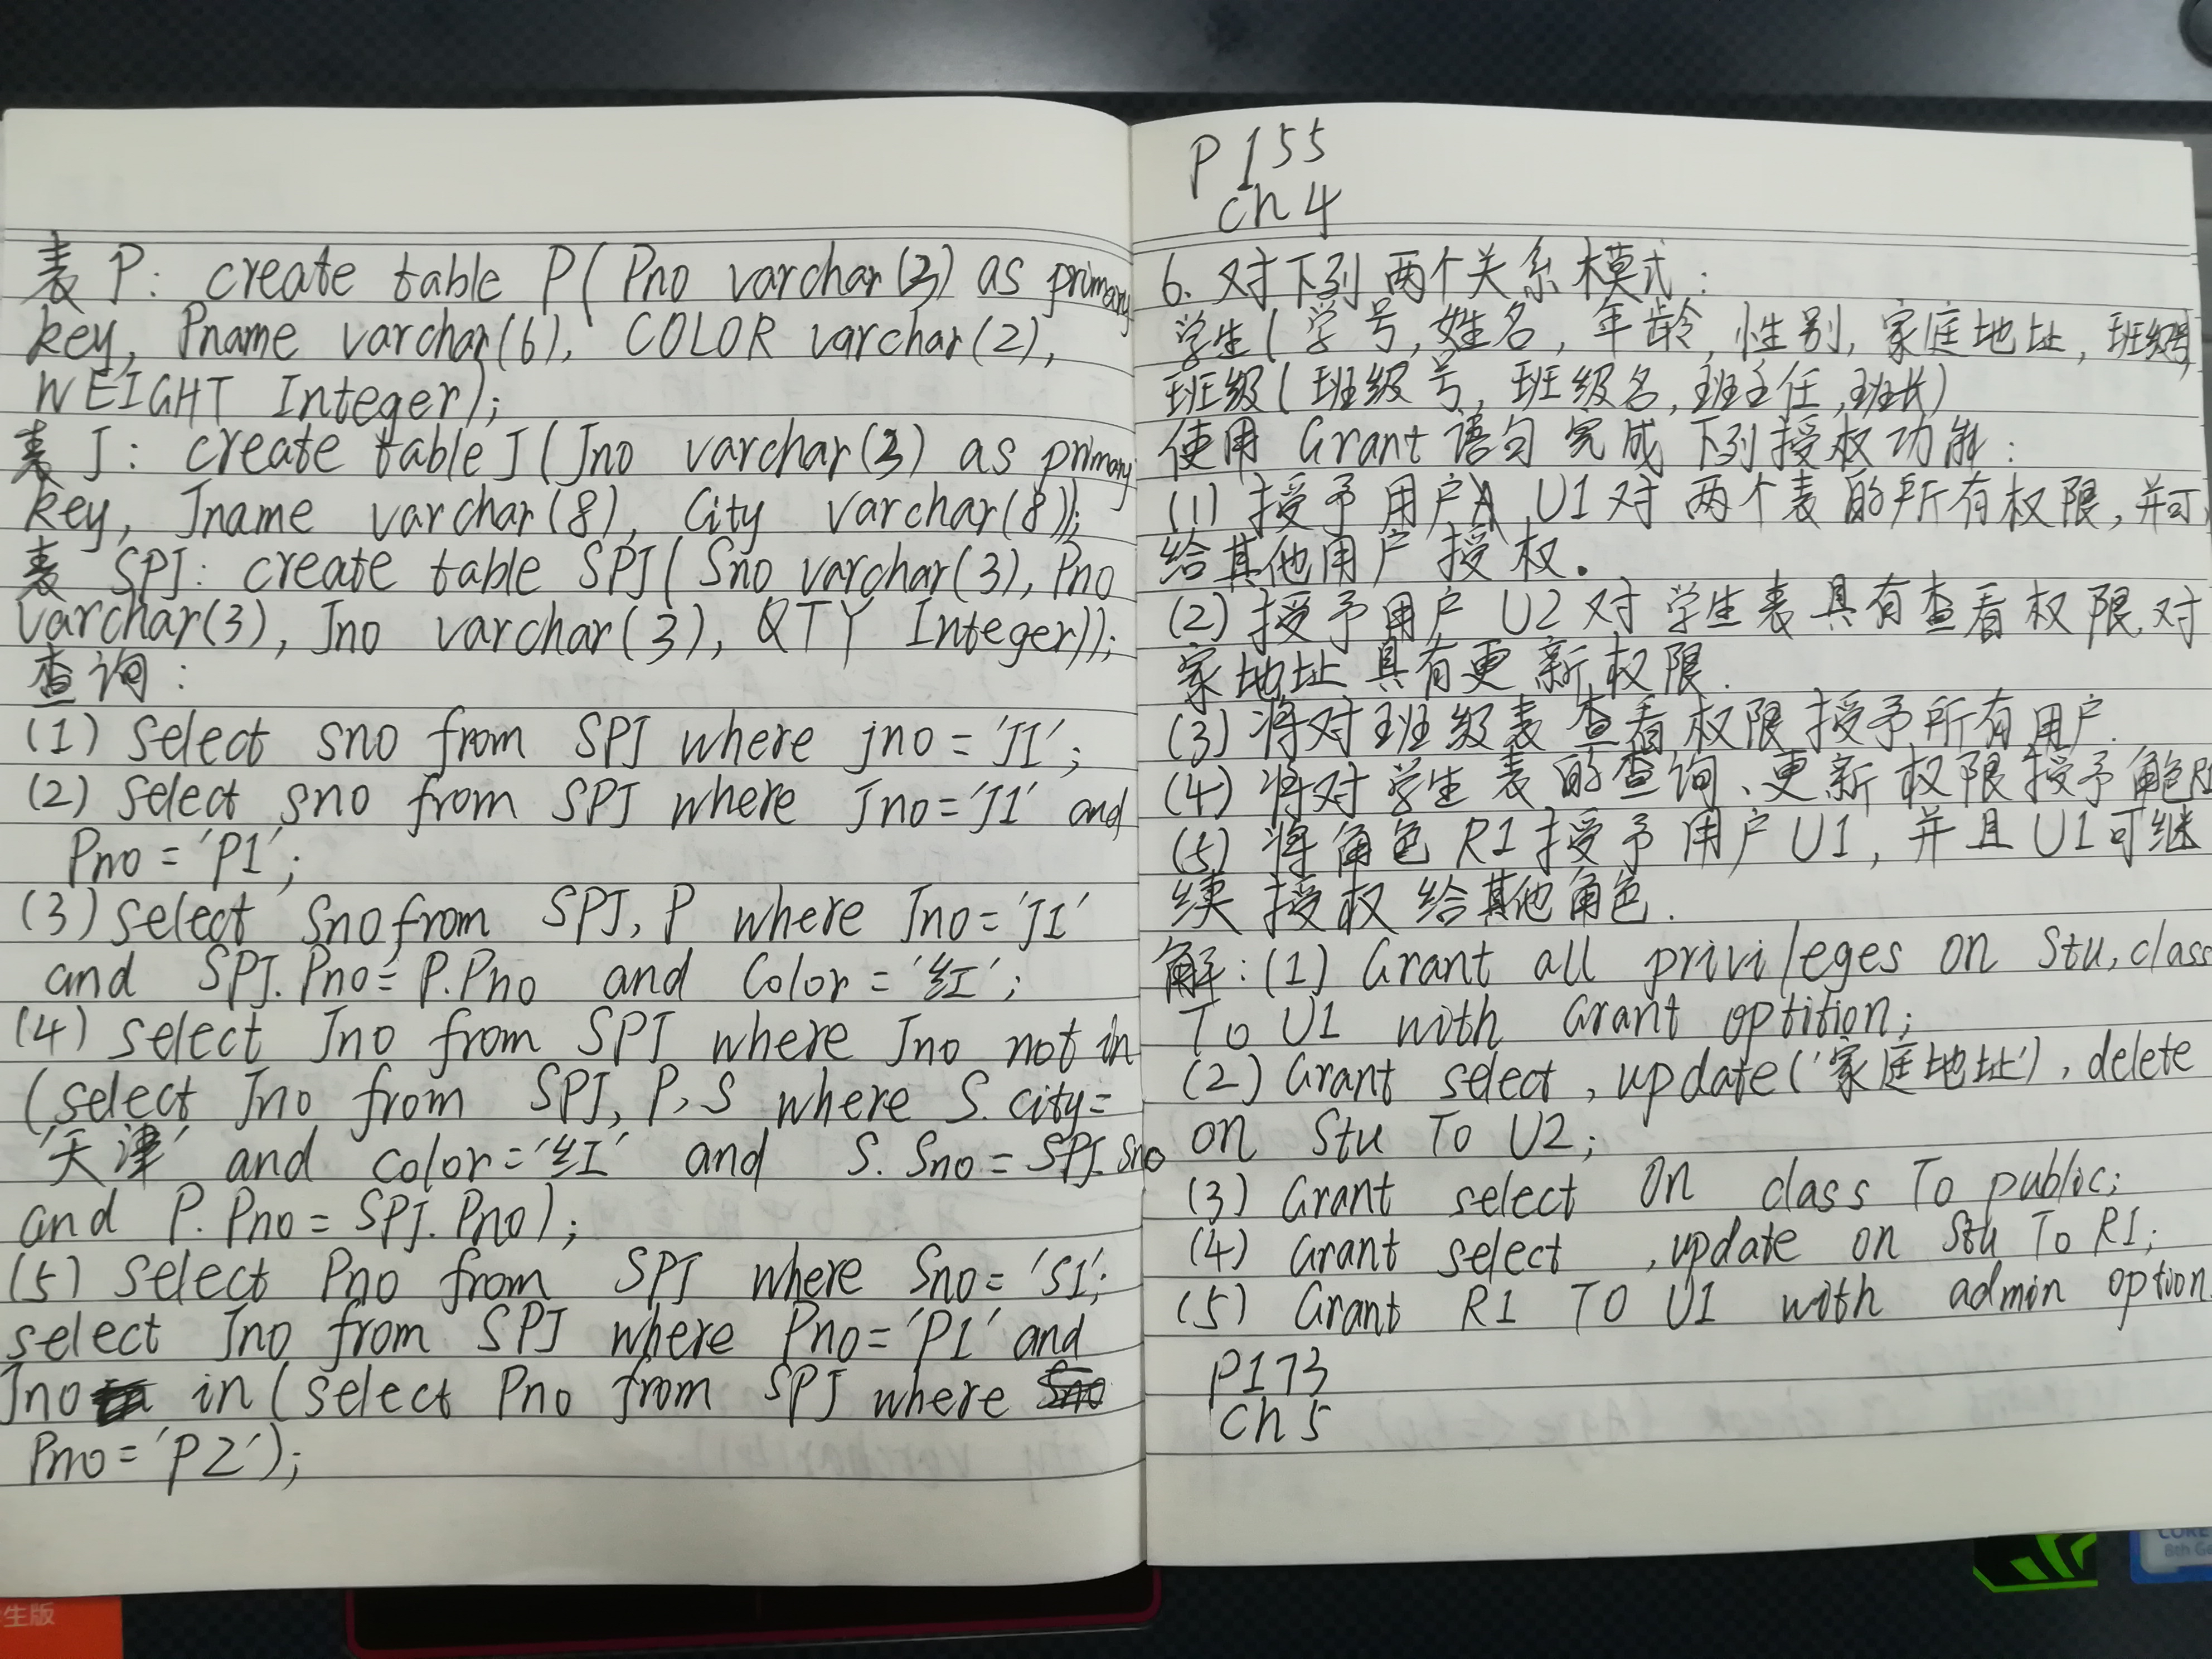 表 P: create table P( Pno varchar(3) as primary
key, Pname varchar(6), COLOR varchar(2),
WEIGHT Integer);
表 J: create table J( Jno varchar(3) as primary
key, Jname varchar(8), City varchar(8));
表 SPJ: create table SPJ( Sno varchar(3), Pno
varchar(3), Jno varchar(3), QTY Integer));
查询:
(1) Select sno from SPJ where jno = 'J1';
(2) Select sno from SPJ where Jno='J1' and
Pno = 'P1';
(3) select Sno from SPJ, P where Jno='J1'
and SPJ.Pno=P.Pno and Color='红';
(4) select Jno from SPJ where Jno not in
(select Jno from SPJ, P, S where S.city=
'天津' and color='红' and S.Sno=SPJ.Sno
and P.Pno=SPJ.Pno);
(5) select Pno from SPJ where Sno='S1';
select Jno from SPJ where Pno='P1' and
Jno in (select Pno from SPJ where
Pno='P2');
P155
ch4
6. 对下列两个关系模式:
学生( 学号, 姓名, 年龄, 性别, 家庭地址, 班级号)
班级( 班级号, 班级名, 班主任, 班长)
使用 Grant 语句完成下列授权功能:
(1) 授予用户 U1对两个表的所有权限, 并可
给其他用户授权.
(2) 授予用户 U2对学生表具有查看权限,对
家地址具有更新权限.
(3) 将对班级表查看权限授予所有用户.
(4) 将对学生表的查询、更新权限授予角色R1
(5) 将角色R1授予用户U1, 并且U1可继
续授权给其他角色.
解: (1) Grant all privileges on Stu, class
To U1 with Grant optition;
(2) Grant select, update('家庭地址'), delete
on Stu To U2;
(3) Grant select On class To public;
(4) Grant select ,update on Stu To R1;
(5) Grant R1 TO U1 with admin option
P173
Ch5
生版
CORE
8th Ge